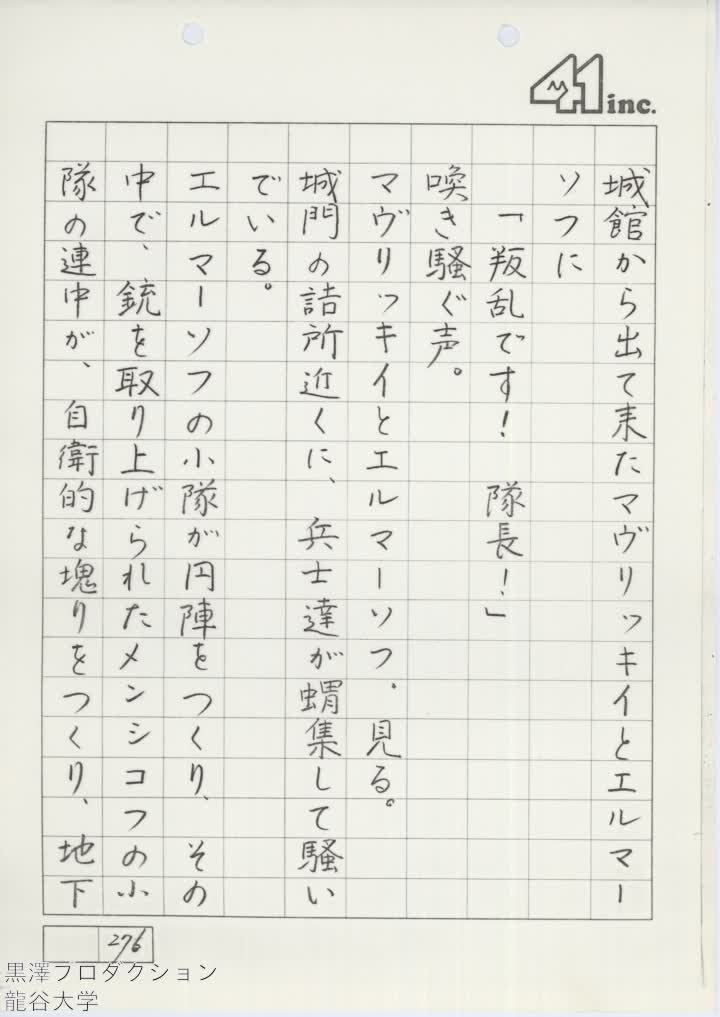 41 inc.
城館から出て来たマヴリッキイとエルマー
ソフに
「叛乱です! 隊長!」
喚き騒ぐ声。
マヴリッキイとエルマーソフ、見る。
城門の詰所近くに、兵士達が蝟集して騒い
でいる。
エルマーソフの小隊が円陣をつくり、その
中で、銃を取り上げられたメンシコフの小
隊の連中が、自衛的な塊りをつくり、地下
276
黒澤プロダクション
龍谷大学